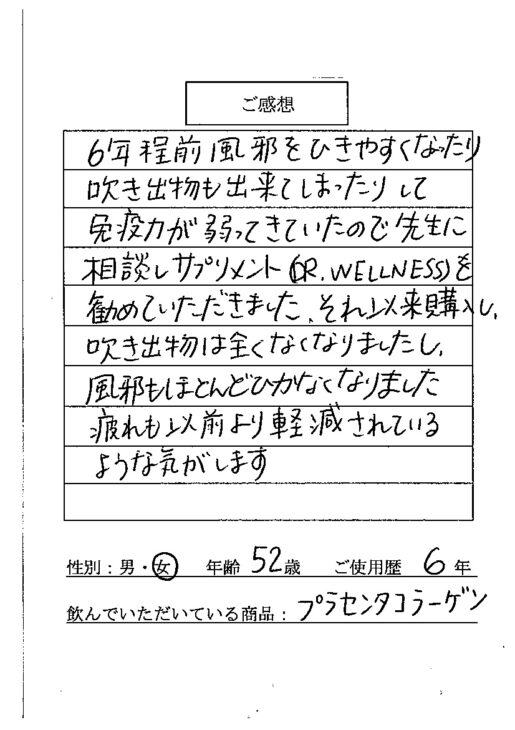 ご感想
6年程前風邪をひきやすくなったり
吹き出物も出来てしまったりして
免疫力が弱ってきていたので先生に
相談しサプリメント(DR.WELLNESS)を
勧めていただきました、それ以来購入し、
吹き出物は全くなくなりましたし、
風邪もほとんどひかなくなりました
疲れも以前より軽減されている
ような気がします
性別：男・女 年齢 52歳 ご使用歴 6年
飲んでいただいている商品：プラセンタコラーゲン